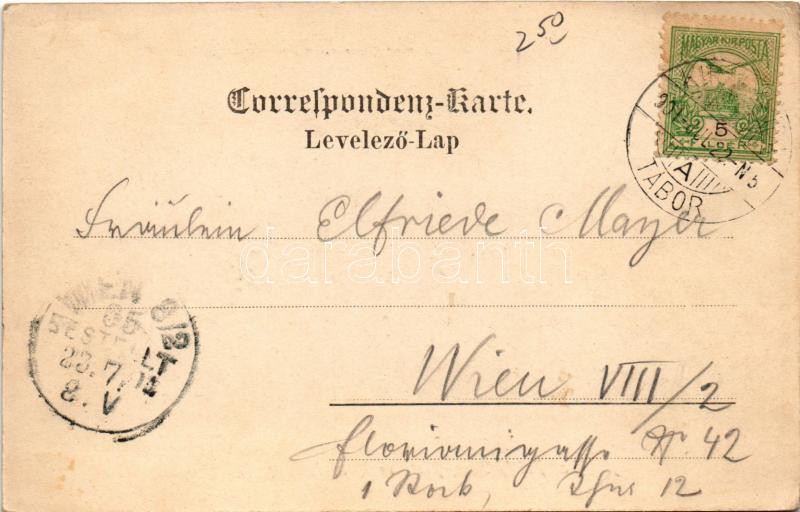 2 50
MAGYAR KIR POSTA
5
TÁBOR
Correspondenz-Karte.
Levelező-Lap
Fräulein Elfriede Mayer
darabanth
WIEN 8/2
BESTELLT
8. V
Wien VIII/2
Florianigasse Nr. 42
1 Stock, Thür 12